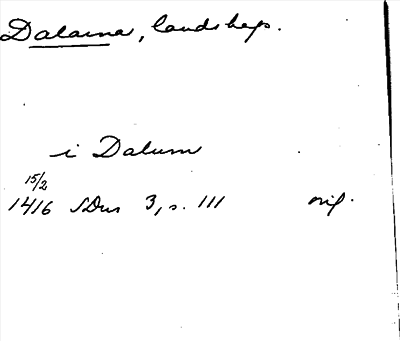 Dalarna, landskap.
i Dalum
15/2
1416 SDns 3, s. 111 orig.